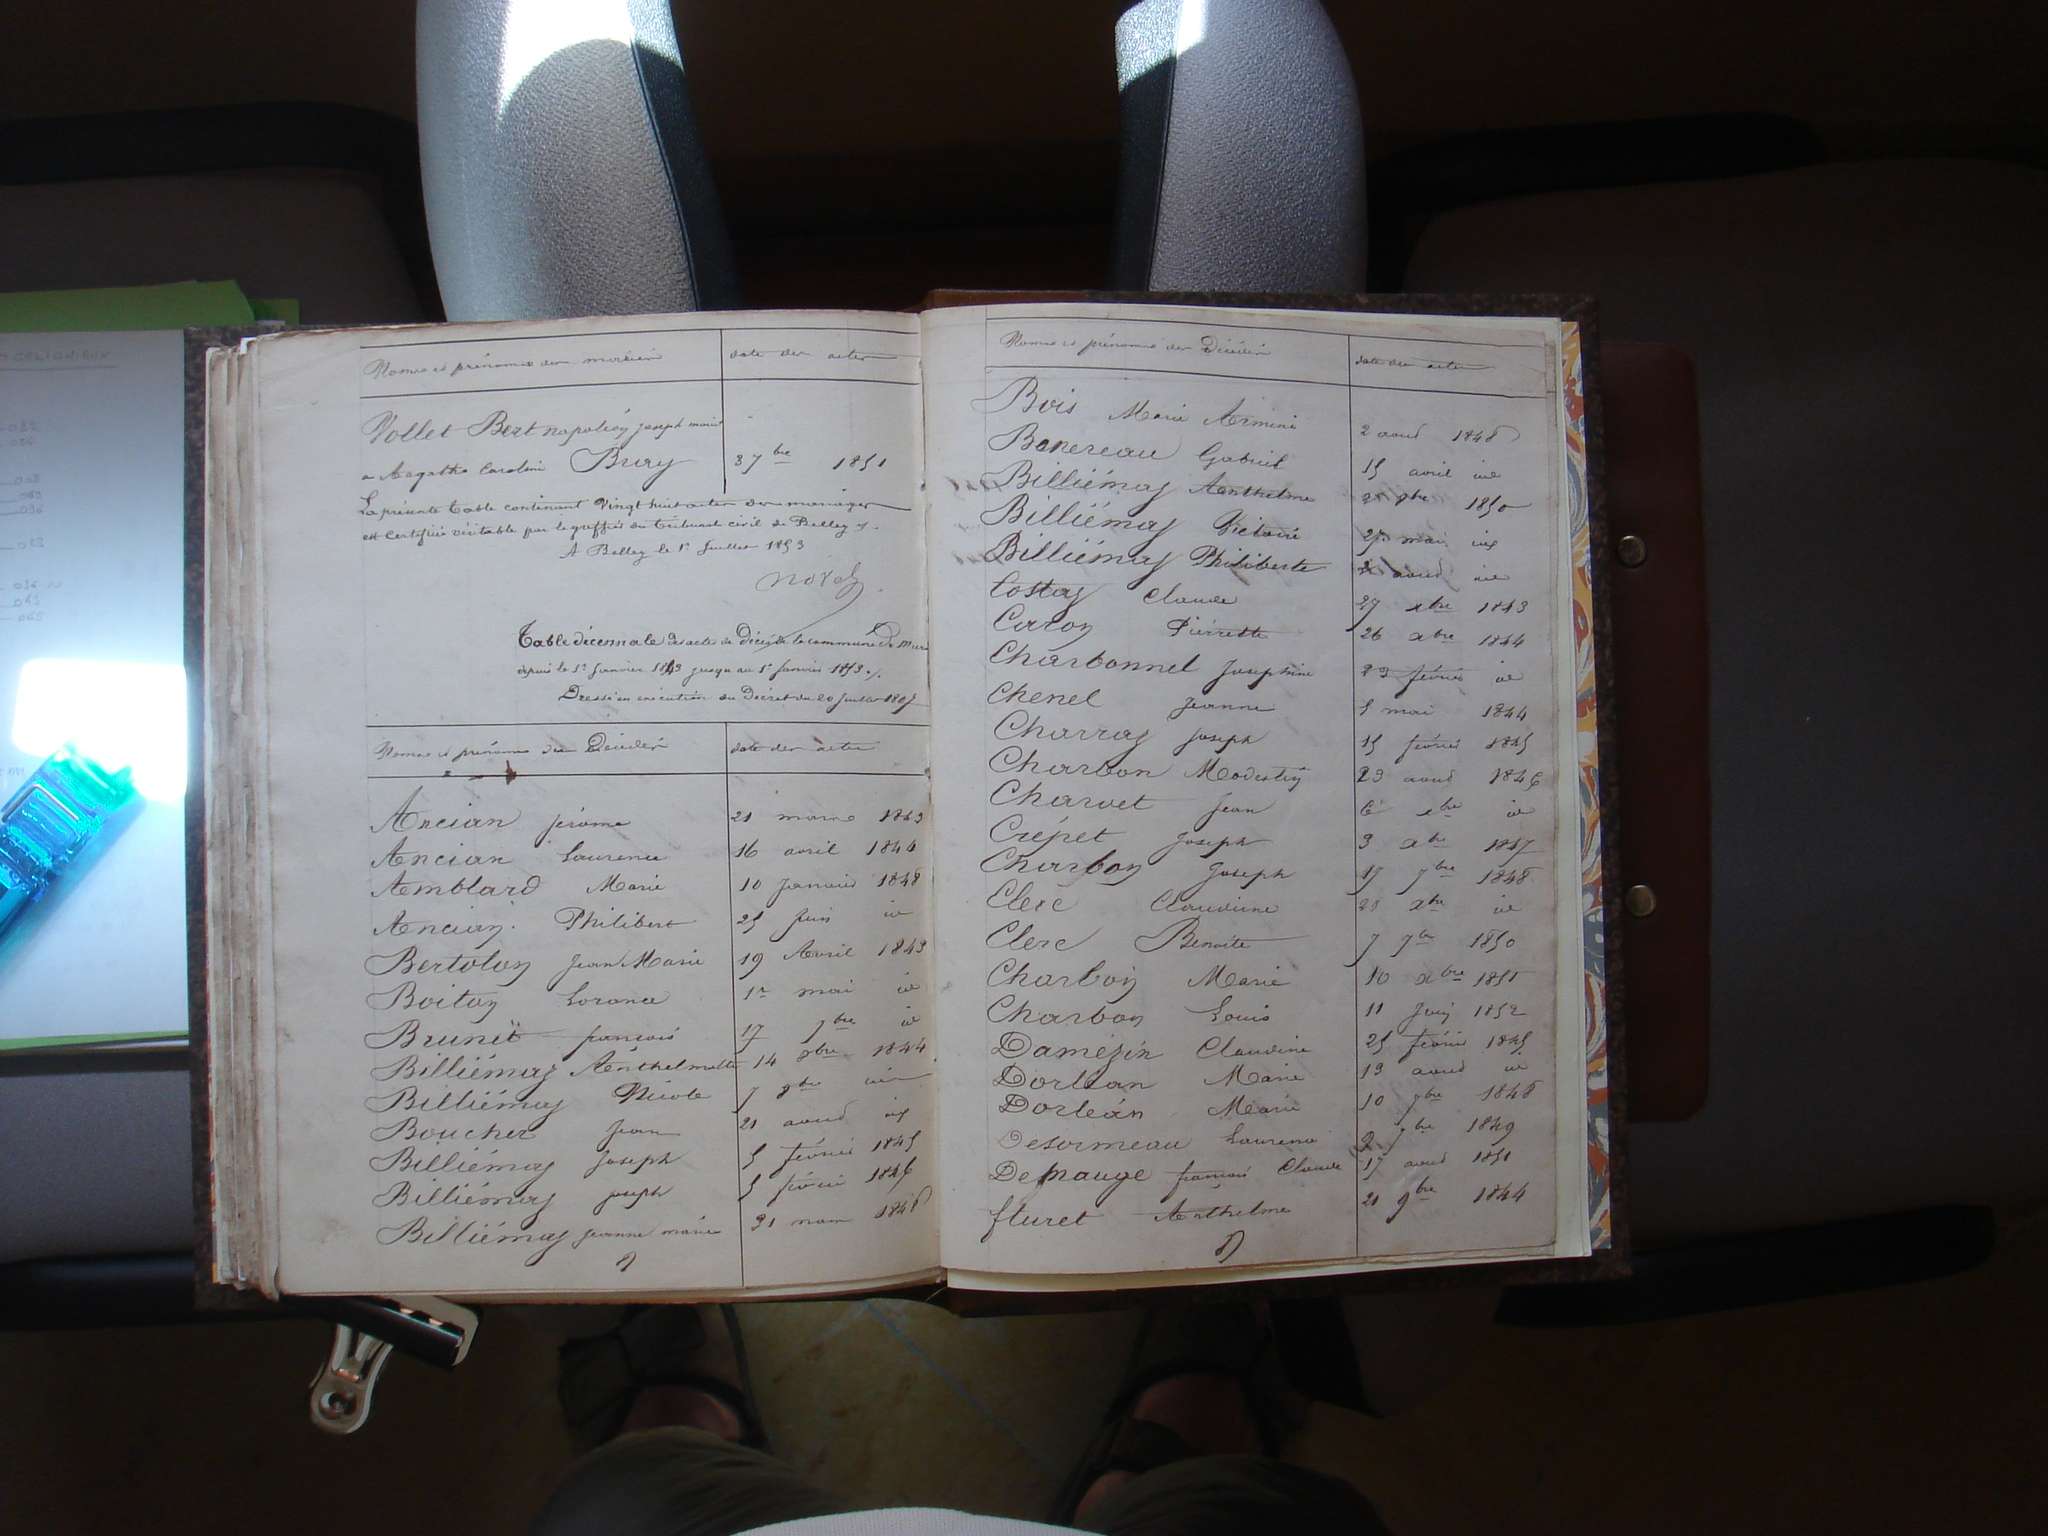 Noms et prénoms des mariés date des actes
Vollet Bert napoléon joseph marie
a Agathe Caroline Bury 3 7bre 1851
La présente table contenant Vingt huit actes de mariages
est certifiée véritable par le greffier du tribunal civil de Belley
A Belley le 1r Juillet 1853
Table décennale des actes de Décès de la commune De Murs
depuis le 1r Janvier 1843 jusqu'au 1r Janvier 1853
Dressée en exécution du Décret du 20 Juillet 1807
Noms et prénoms des Décédés date des actes
Ancian jérome 21 mars 1843
Ancian Laurence 16 avril 1844
Amblard Marie 10 Janvier 1848
Ancian Philibert 25 juin id
Bertolon Jean Marie 19 Avril 1843
Boiton Lorance 1r mai id
Brunet françois 17 7bre id
Billiémaz Anthelmette 14 8bre 1844
Billiémaz Nicole 7 8bre id
Boucher Jean 21 aoud id
Billiémaz Joseph 5 février 1845
Billiémaz joseph 5 février 1846
Billiémaz jeanne marie 31 mars 1848
Noms et prénoms des Décédés date des actes
Bois Marie Armine 2 aoud 1848
Bonereau Gabriel 15 avril id
Billiémaz Anthelme 1850
Billiémaz Victoire 27 mars id
Billiémaz Philiberte aoud id
Costaz Claude 27 xbre 1843
Caron Pierrette 26 xbre 1844
Charbonnel Josephine 23 février id
Chenel Jeanne 5 mai 1844
Charraz joseph 15 février 1845
Charbon Modestin 23 aoud 1846
Charvet Jean 6 xbre id
Crépet Joseph 3 xbre 1847
Charbon Joseph 17 7bre 1848
Clerc Claudine 23 xbre id
Clerc Benoite 7 7bre 1850
Charbon Marie 10 xbre 1851
Charbon Louis 11 Juin 1852
Damézin Claudine 25 février 1845
Dorlean Marie 13 aoud id
Dorléan Marie 10 7bre 1848
Desormeau Laurence 2 7bre 1849
Demauge françois Claude 17 aoud 1851
fturet Anthelme 21 9bre 1844